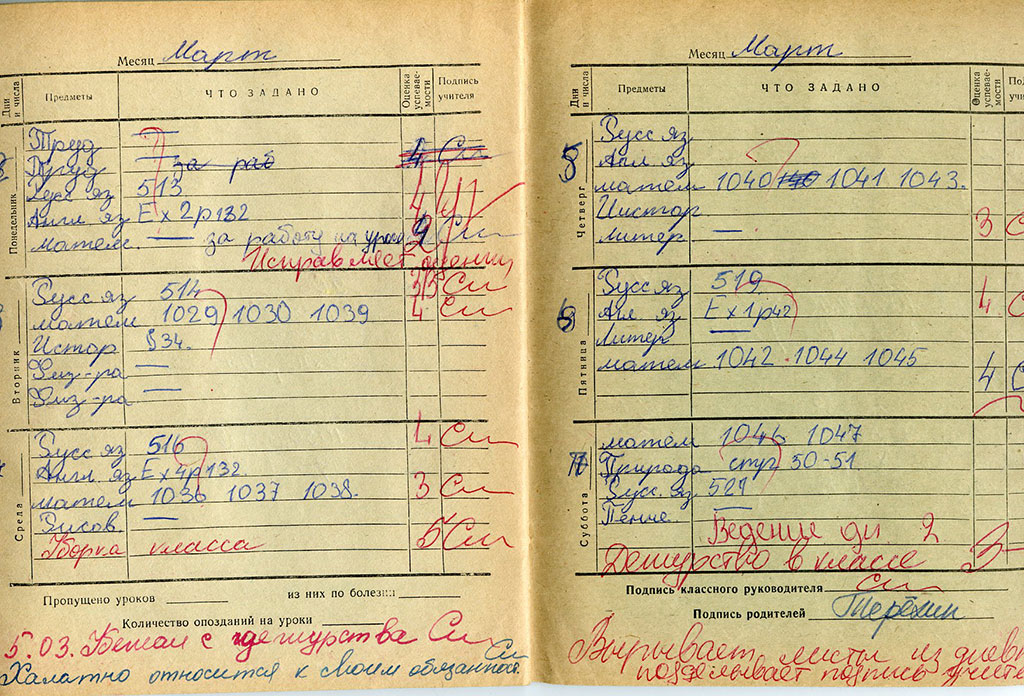 Месяц Март
Дни и числа Предметы ЧТО ЗАДАНО Оценка успевае-мости Подпись учителя
Понедельник
Труд —
Труд — за раб 4 См
Русс яз 513 4
Англ яз Ex 2p132 4
матем — за работу на уроке 2 См
Исправляет оценки
Вторник
Русс яз 514 3/3 См
матем 1029 1030 1039 4 См
Истор §34.
Физ-ра —
Физ-ра —
Среда
Русс яз 516 4 См
Англ. яз Ex4p132
матем 1036 1037 1038. 3 См
Рисов. —
Уборка класса 5 См
Пропущено уроков из них по болезни
Количество опозданий на уроки
5.03. Бежал с дежурства См
Халатно относится к своим обязанност. См
Месяц Март
Дни и числа Предметы ЧТО ЗАДАНО Оценка успевае-мости
Четверг
5
Русс яз
Англ яз
матем 1040 1041 1043.
Истор 3 С
Литер —
Пятница
6
Русс яз 519 4
Агл яз Ex1p42
Литер
матем 1042 1044 1045 4
Суббота
матем 1046 1047
Природа стр 50-51
Русс. яз 521
Пение. —
Ведение дн 2
Дежурство в классе 3-
Подпись классного руководителя См
Подпись родителей Терёхин
Вырывает листы из дневн
подделывает подпись учите